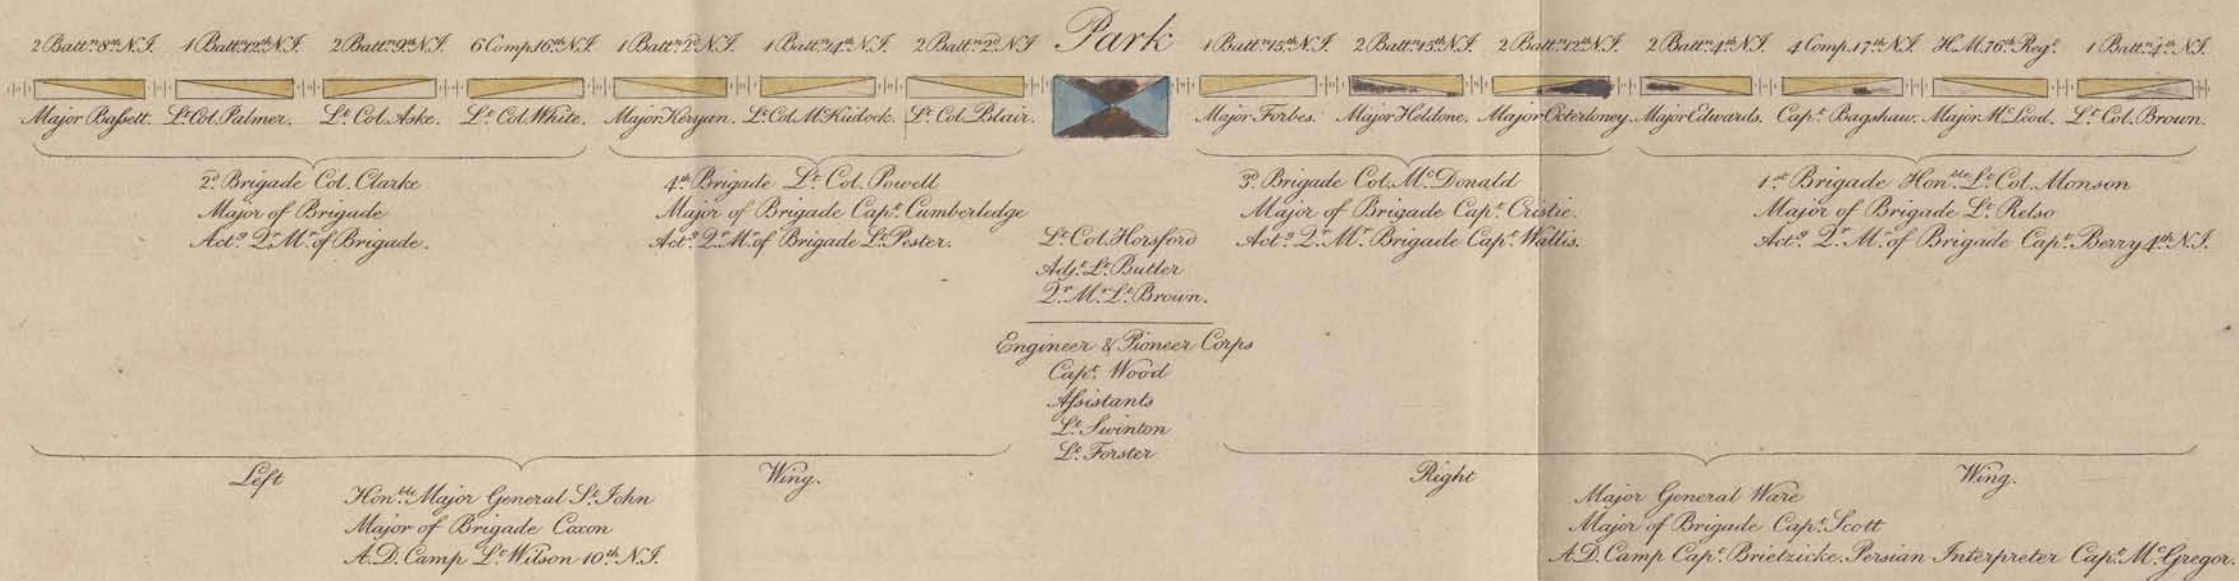 Park
2 Battn. 8th N.I. 1 Battn. 12th N.I. 2 Battn. 9th N.I. 6 Comp. 16th N.I. 1 Battn. 2d. N.I. 1 Battn. 14th N.I. 2 Battn. 2d. N.I 1 Battn. 15th N.I. 2 Battn. 15th N.I. 2 Battn. 12th N.I. 2 Battn. 4th N.I. 4 Comp. 17th N.I. H.M. 76th Regt. 1 Battn. 4th N.I.
Major Bassett. Lt. Col. Palmer. Lt. Col. Aske. Lt. Col. White. Major Keryan. Lt. Col. McKudock. Lt. Col. Blair. Major Forbes. Major Heldone. Major Octerloney. Major Edwards. Capt. Bagshaw. Major McLeod. Lt. Col. Brown.
2d. Brigade Col. Clarke
Major of Brigade
Actg. Qr. Mr. of Brigade.
4th Brigade Lt. Col. Powell
Major of Brigade Capt. Cumberledge
Actg. Qr. Mr. of Brigade Lt. Pester.
Lt. Col. Horsford
Adjt. Lt. Butler
Qr. Mr. Lt. Brown.
3d. Brigade Col. McDonald
Major of Brigade Capt. Cristie.
Actg. Qr. Mr. Brigade Capt. Wallis.
1st Brigade Honble. Lt. Col. Monson
Major of Brigade Lt. Relso
Actg. Qr. Mr. of Brigade Capt. Berry 4th N.I.
Engineer & Pioneer Corps
Capt. Wood
Assistants
Lt. Swinton
Lt. Forster
Left Wing.
Honble. Major General St. John
Major of Brigade Coxon
A.D. Camp Lt. Wilson 10th N.I.
Right Wing.
Major General Ware
Major of Brigade Capt. Scott
A.D. Camp Capt. Brietzicke. Persian Interpreter Capt. McGregor